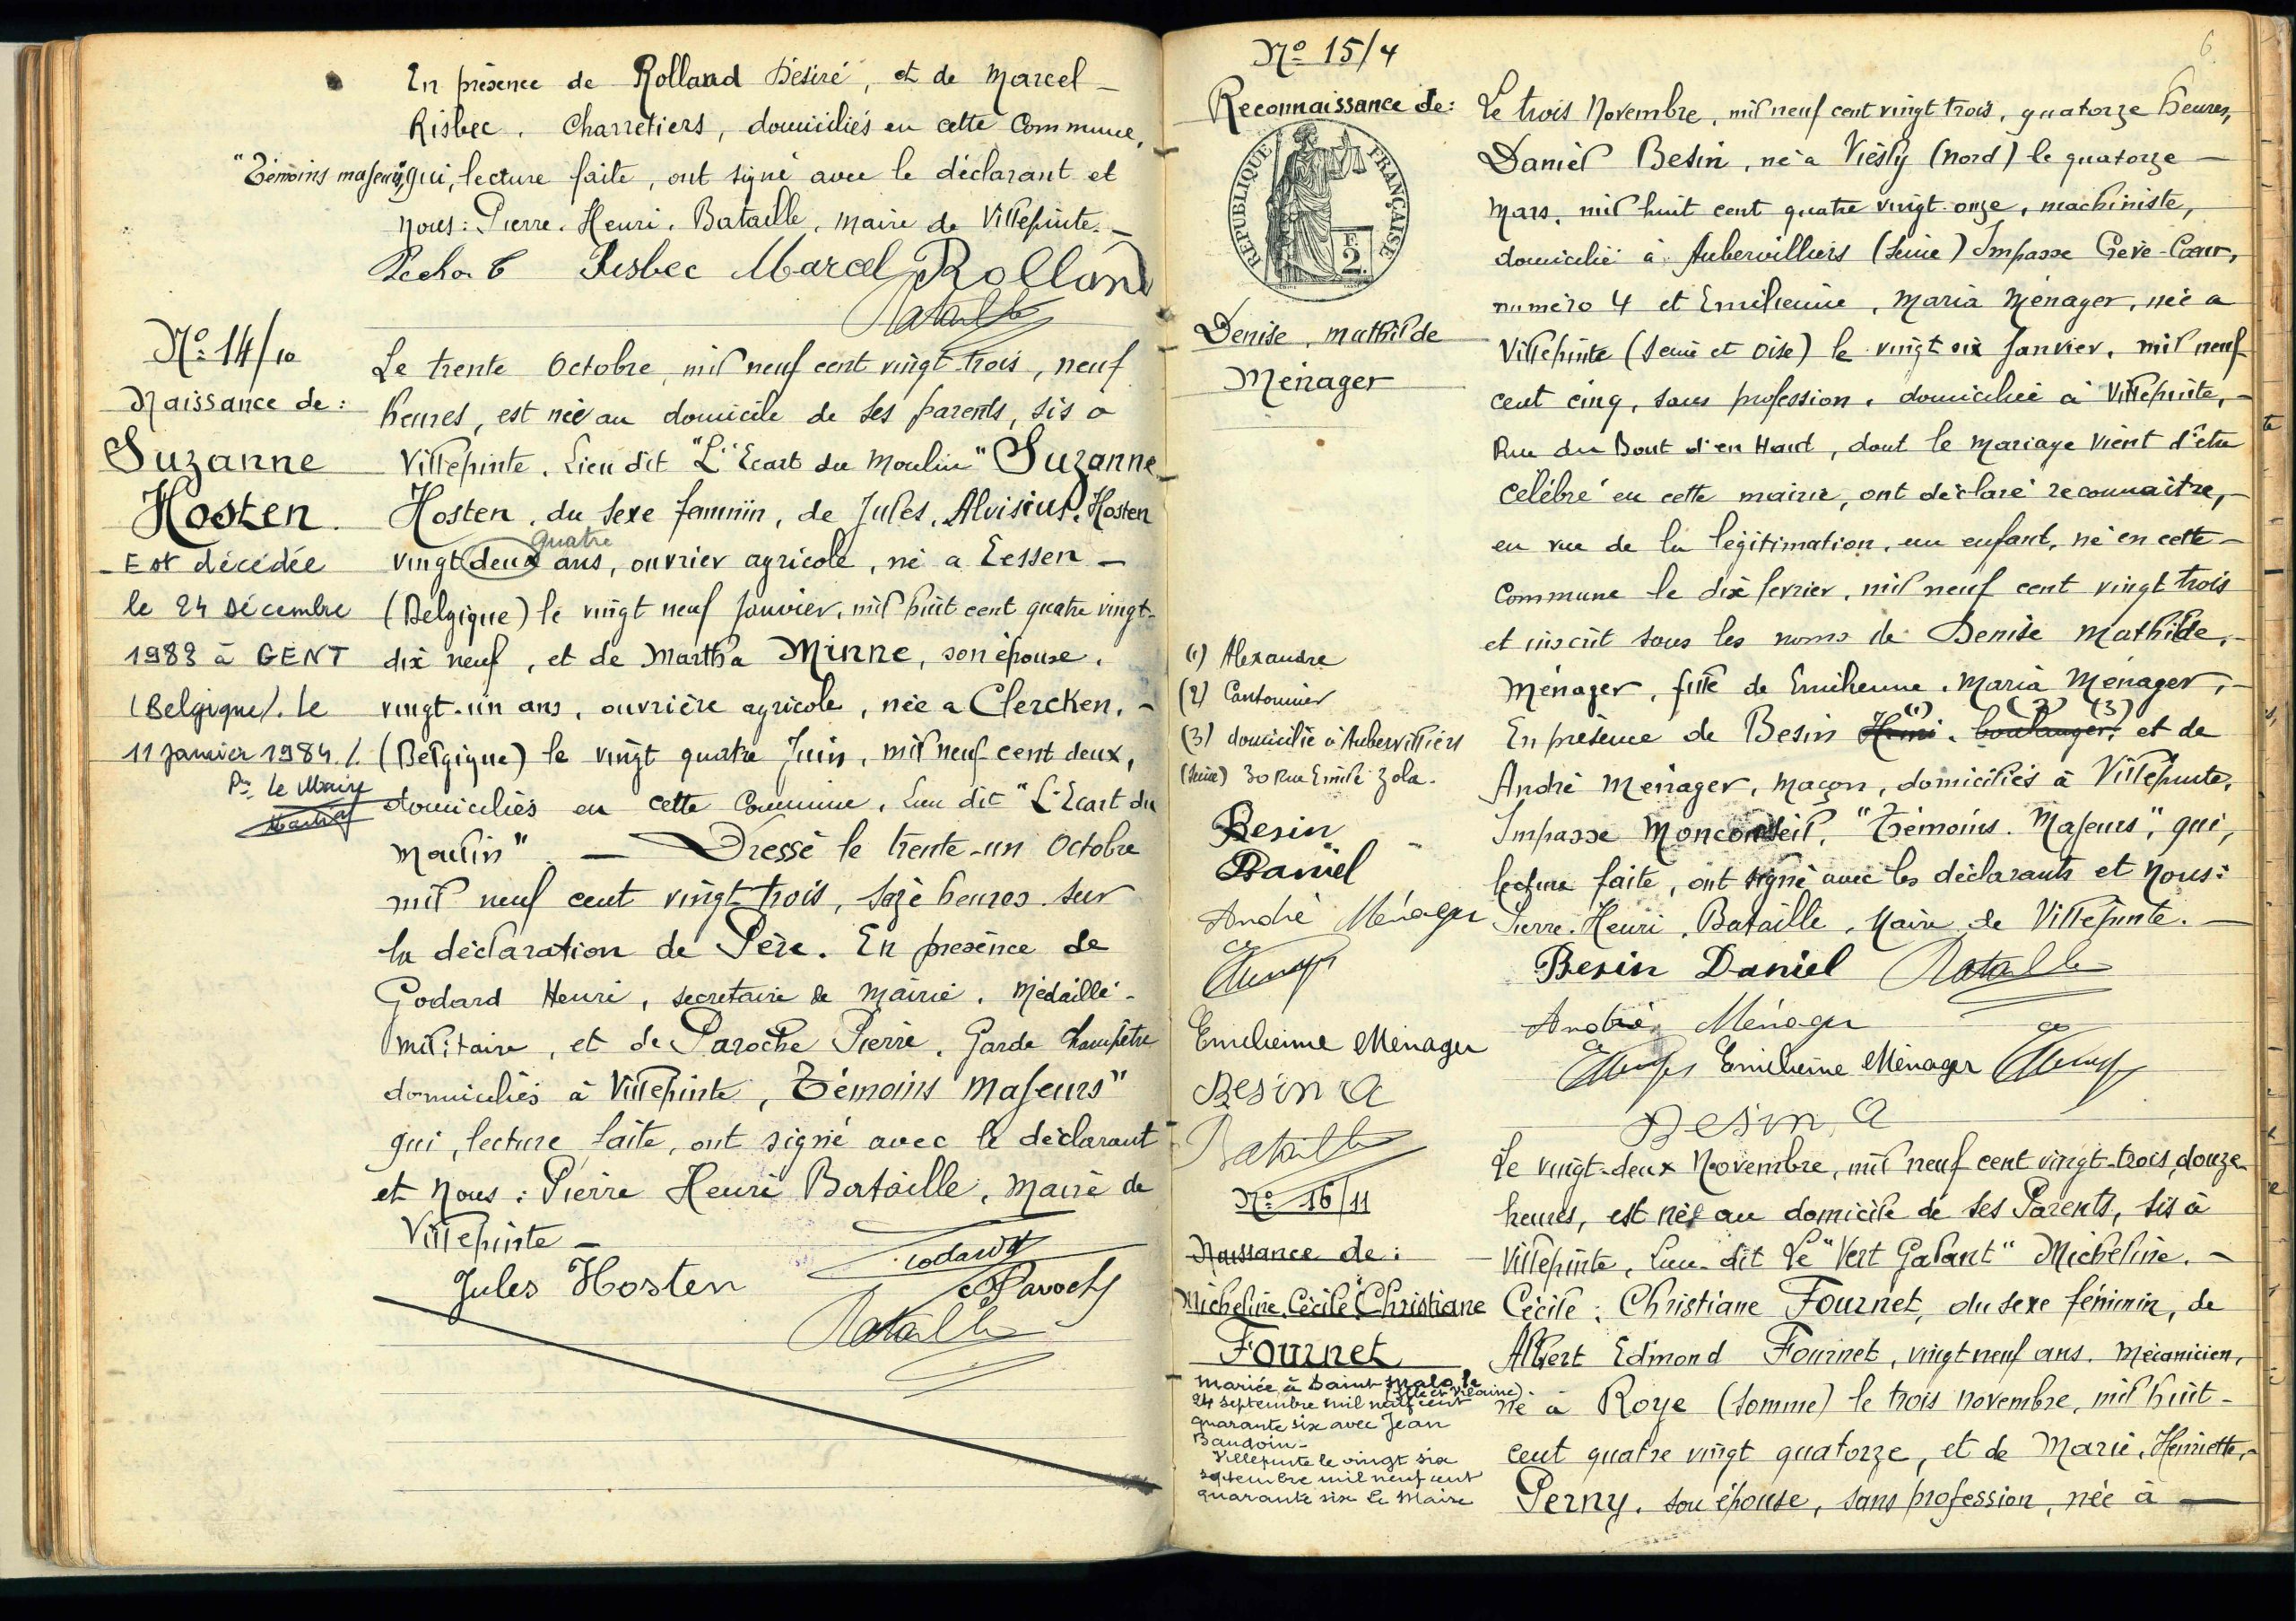 En présence de Rolland Désiré, et de Marcel –
Risbec. Charretiers, domiciliés en cette Commune,
"Témoins majeurs", qui, lecture faite, ont signé avec le déclarant et
nous: Pierre. Henri. Bataille, maire de Villepinte. –
Risbec Marcel Rolland
Bataille
No: 14/10
Naissance de:
Suzanne
Hosten.
Est décédée
le 24 Décembre
1983 à GENT
(Belgique). Le
11 Janvier 1984./.
Pr. Le Maire
Le trente Octobre, mil neuf cent vingt-trois, neuf
heures, est née au domicile de ses parents, sis à
Villepinte. Lieu dit "L'Ecart du Moulin" Suzanne
Hosten, du sexe féminin, de Jules, Aloisius, Hosten
quatre
vingt deux ans, ouvrier agricole, né a Eessen –
(Belgique) le vingt neuf Janvier, mil huit cent quatre vingt-
dix neuf, et de Martha Minne, son épouse,
vingt-un ans, ouvrière agricole, née a Clercken, –
(Belgique) le vingt quatre Juin, mil neuf cent deux,
domiciliés en cette Commune, Lieu dit "L'Ecart du
Moulin". — Dressé le trente-un Octobre
mil neuf cent vingt-trois, seize heures sur
la déclaration de Père. En présence de
Godard Henri, secrétaire de Mairie. Médaillé-
militaire, et de Paroche Pierre. Garde Champêtre
domiciliés à Villepinte, Témoins Majeurs"
qui, lecture faite, ont signé avec le déclarant
et Nous: Pierre Henri Bataille, Maire de
Villepinte –
Godard
Jules Hosten
Paroche
Bataille
6
No 15/4
Reconnaissance de:
REPUBLIQUE FRANÇAISE
2F.
Denise, Mathilde
Ménager
(1) Alexandre
(2) Cantonnier
(3) domicilié à Aubervilliers
(Seine) 30 Rue Emile Zola.
Besin
Daniel
André Ménager
Emilienne Ménager
Besin A
Bataille
Le trois Novembre, mil neuf cent vingt trois, quatorze heures,
Daniel Besin, né à Viesly (Nord) le quatorze –
Mars, mil huit cent quatre vingt-onze, machiniste,
domicilié à Aubervilliers (Seine) Impasse Crève-Cœur,
numéro 4 et Emilienne, Maria Ménager, née a
Villepinte (Seine et Oise) le vingt six Janvier, mil neuf
cent cinq, sans profession, domiciliée à Villepinte, –
Rue du Bout d'en Haut, dont le Mariage vient d'être
célébré en cette mairie, ont déclaré reconnaitre, –
en vue de la légitimation, un enfant, né en cette –
Commune le dix fevrier, mil neuf cent vingt trois
et inscrit sous les noms de Denise Mathilde, –
Ménager, fille de Emilienne, Maria Ménager, –
(1) (2) (3)
En présence de Besin Henri. boulanger, et de
André Ménager, Maçon, domiciliés à Villepinte,
Impasse Monconseil, "Témoins. Majeurs", qui,
lecture faite, ont signé avec les déclarants et Nous:
Pierre. Henri. Bataille, Maire de Villepinte. –
Besin Daniel Bataille
André Ménager
Emilienne Ménager
Besin A
No 16/11
Naissance de:
Micheline Cécile Christiane
Fournet
Mariée à Saint-Malo le
(Ille et Vilaine)
24 septembre mil neuf cent
quarante six avec Jean
Baudoin –
Villepinte le vingt six
septembre mil neuf cent
quarante six Le Maire
Le vingt-deux Novembre, mil neuf cent vingt-trois, douze
heures, est née au domicile de ses Parents, sis à
Villepinte, Lieu-dit Le "Vert Galant" Micheline. –
Cécile. Christiane Fournet, du sexe féminin, de
Albert Edmond Fournet, vingt neuf ans. Mécanicien,
né à Roye (Somme) le trois novembre, mil huit –
cent quatre vingt quatorze, et de Marie, Henriette, –
Perny, son épouse, sans profession, née à —